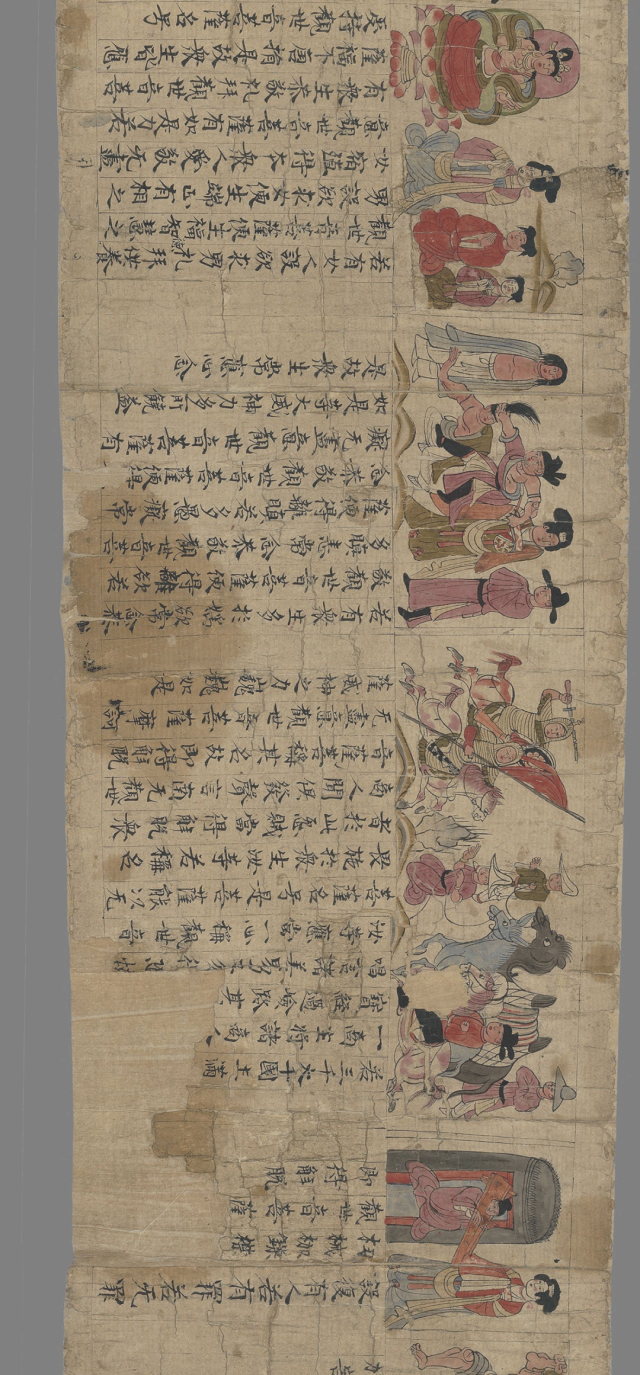 設復有人若有罪若无罪
杻械枷鎖檢
觀世音菩薩
即得解脫
若三千大千國土滿
一商主將諸商人
寶經過嶮路其
唱言諸善男子勿
汝等應當一心稱觀世音
菩薩名号是菩薩能以无
畏施於般生汝等若稱名
者於此惡賊當得解脫眾
商人聞俱發聲言南无觀世
音薩菩稱其名故即得解脫
无盡意觀世音菩薩摩訶
薩威神之力巍巍如是
若有眾生多於婬欲常念恭
敬觀世音菩薩便得離欲若
多瞋恚常念恭敬觀世音菩
薩便得離瞋若多愚癡常
念恭敬觀世音菩薩便得
癡无盡意觀世音菩薩有
如是等大威神力多所饒益
是故眾生常應心念
若有女人設欲求男礼拜供養
觀世音菩薩便生福智慧之
男設欲求女便生端正有相之
女宿殖得本眾人愛敬无盡
意觀世音菩薩有如是力若
有眾生恭敬礼拜觀世音菩
薩福不唐捐是故眾生皆應
受持觀世音菩薩名号